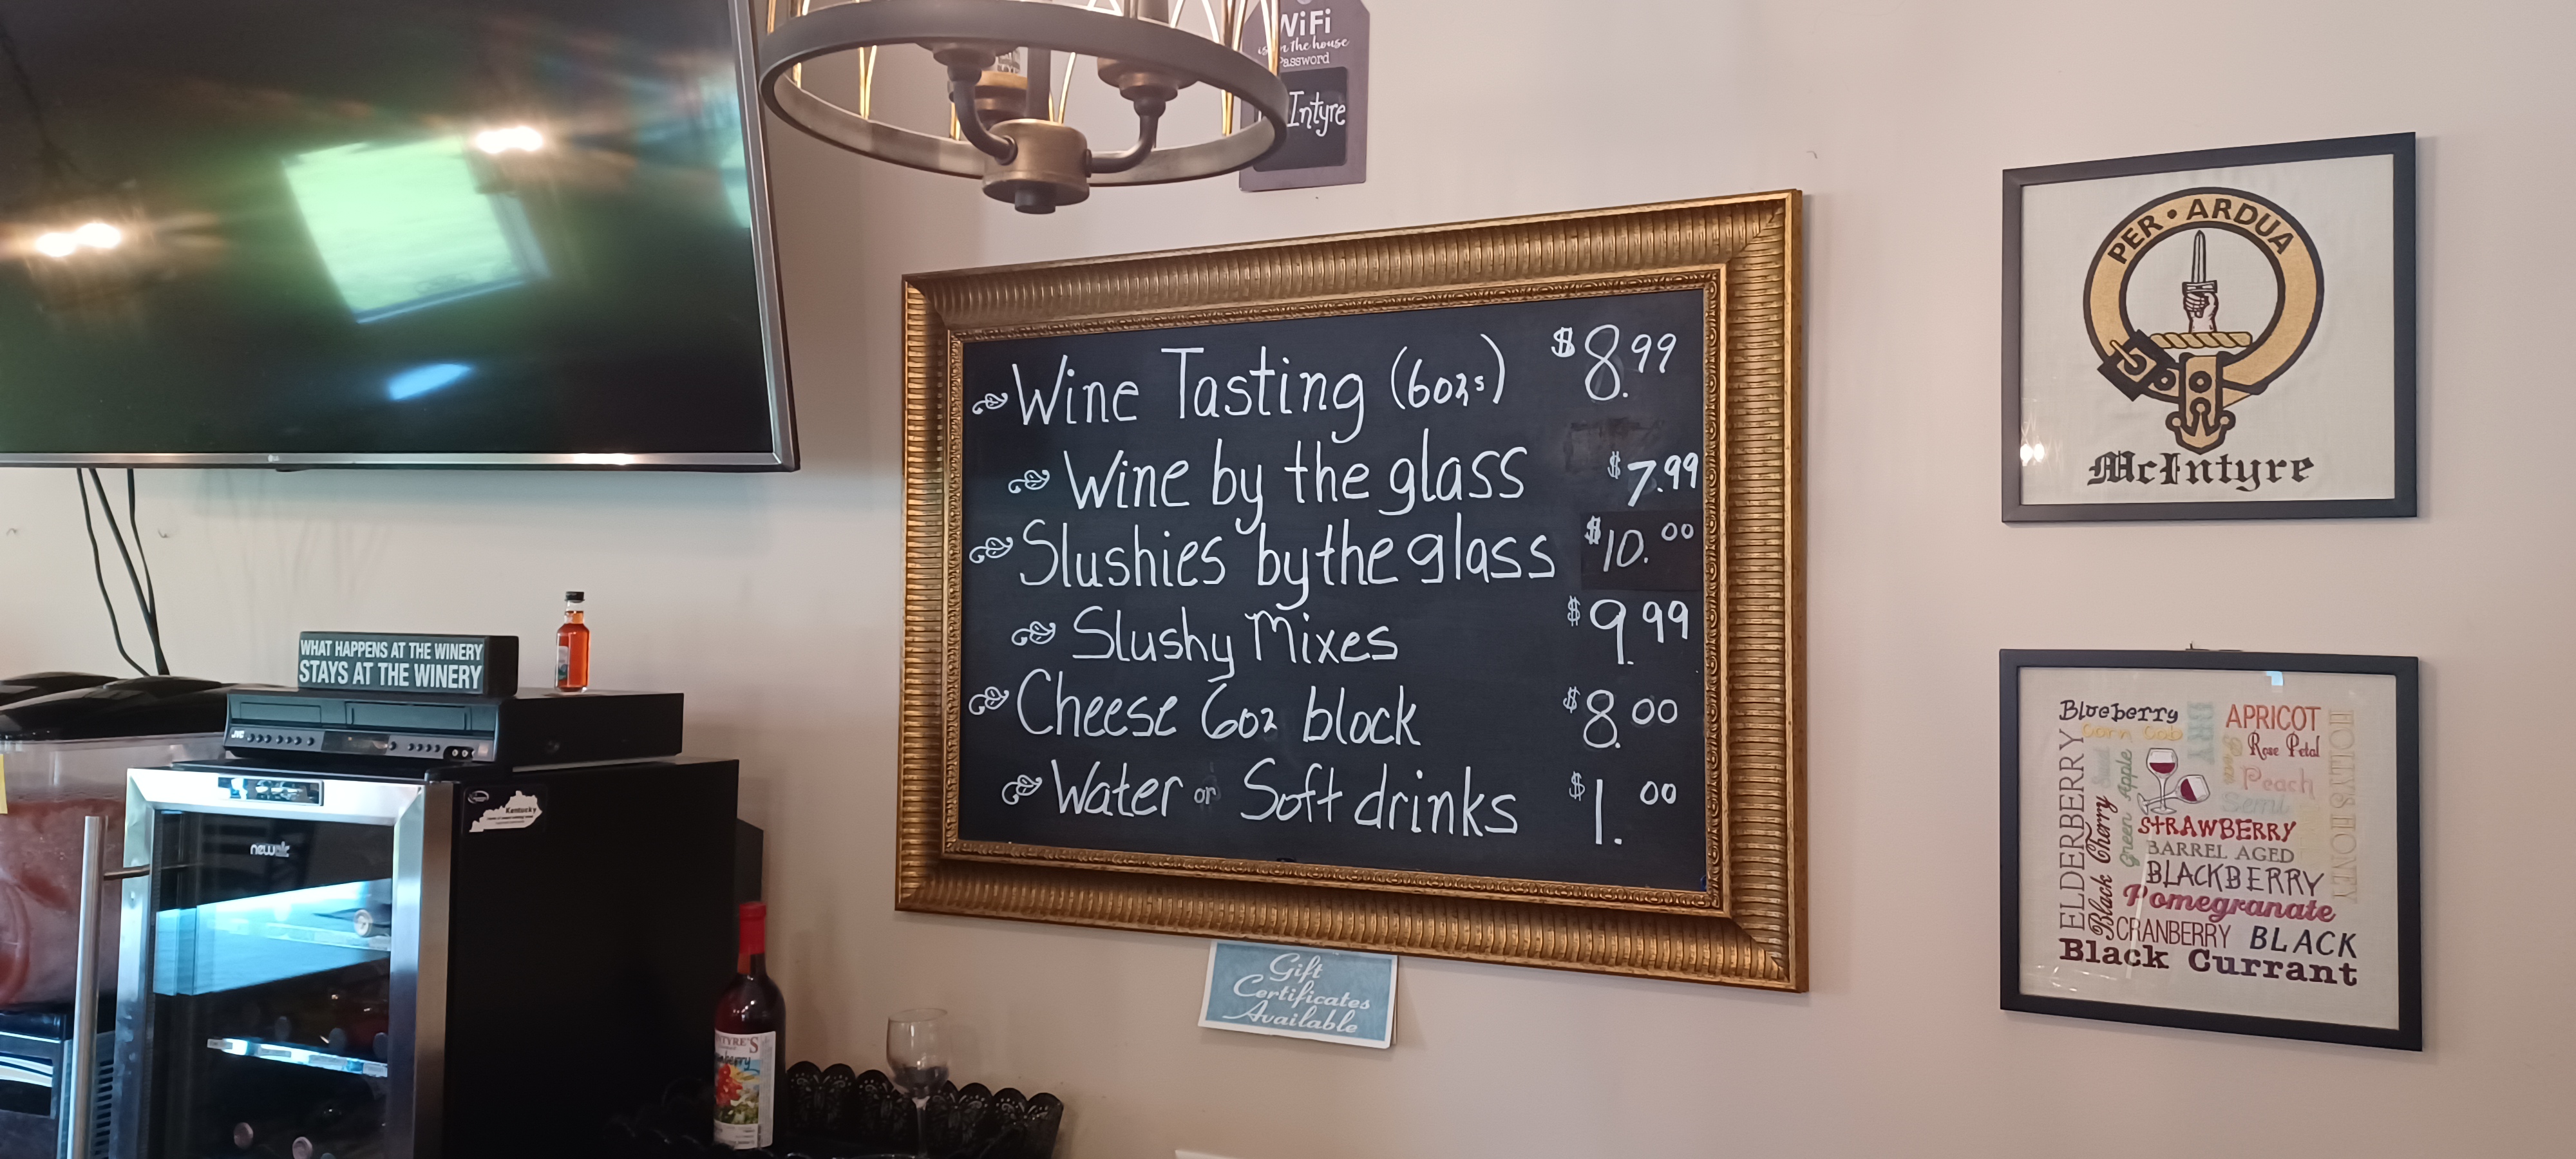 WiFi
the house
Password
Intyre
Wine Tasting (6ozs) $8.99
Wine by the glass $7.99
Slushies by the glass $10.00
Slushy Mixes $9.99
Cheese 6oz block $8.00
Water or Soft drinks $1.00
Gift
Certificates
Available
PER · ARDUA
McIntyre
Blueberry
Corn Cob
APRICOT
Rose Petal
Peach
Semi
HOLLY'S HONEY
ELDERBERRY
Black Cherry
Green Apple
STRAWBERRY
BARREL AGED
BLACKBERRY
Pomegranate
CRANBERRY BLACK
Black Currant
WHAT HAPPENS AT THE WINERY
STAYS AT THE WINERY
JVC
newair
Kentucky
NTYRE'S
LG